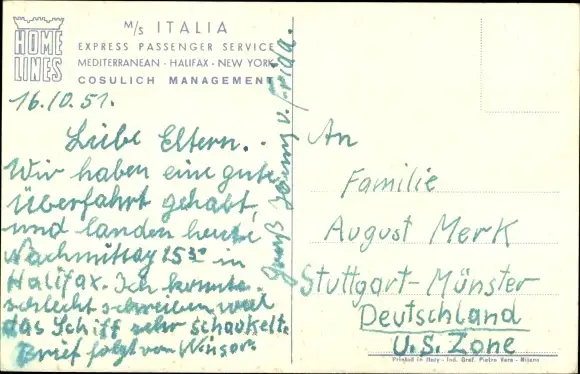 HOME
LINES
M/s ITALIA
EXPRESS PASSENGER SERVICE
MEDITERRANEAN - HALIFAX - NEW YORK
COSULICH MANAGEMENT
16.10.51.
Liebe Eltern.
Wir haben eine gute
Überfahrt gehabt,
und landen heute
Nachmittag 15 30 in
Halifax. Ich konnte
schlecht schreiben, weil
das Schiff sehr schaukelt.
Brief folgt von Winsor.
Gruß v. Frida.
An
Familie
August Merk
Stuttgart-Münster
Deutschland
U.S. Zone
Printed in Italy - Ind. Graf. Pietro Vera - Milano